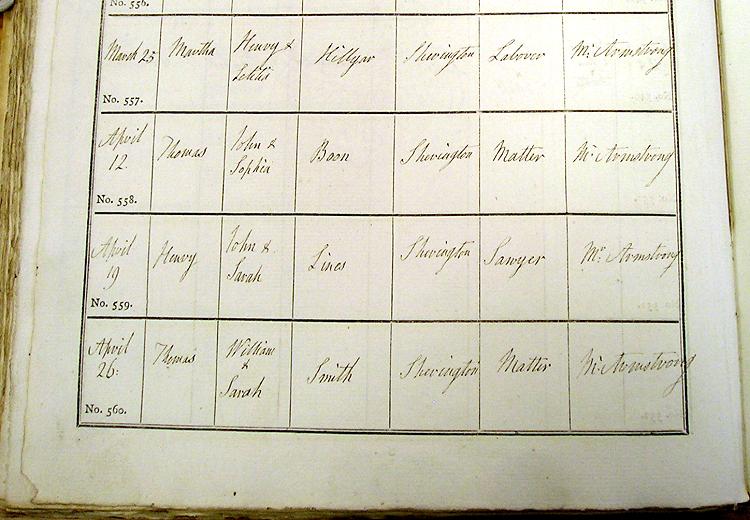 No. 556.
March 25 Martha Henry & Hillyar Shevington Labover Mr. Armstrong
No. 557.
April John & Boon Shevington Matter Mr. Armstrong
12 Thomas Sophia
No. 558.
April Henry John & Lines Shevington Sawyer Mr. Armstrong
19 Sarah
No. 559.
April Thomas William Smith Shevington Matter Mr. Armstrong
26. &
Sarah
No. 560.